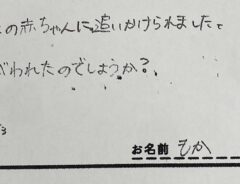 の赤ちゃんに追いかけられました。
われたのでしょうか?
お名前 もか